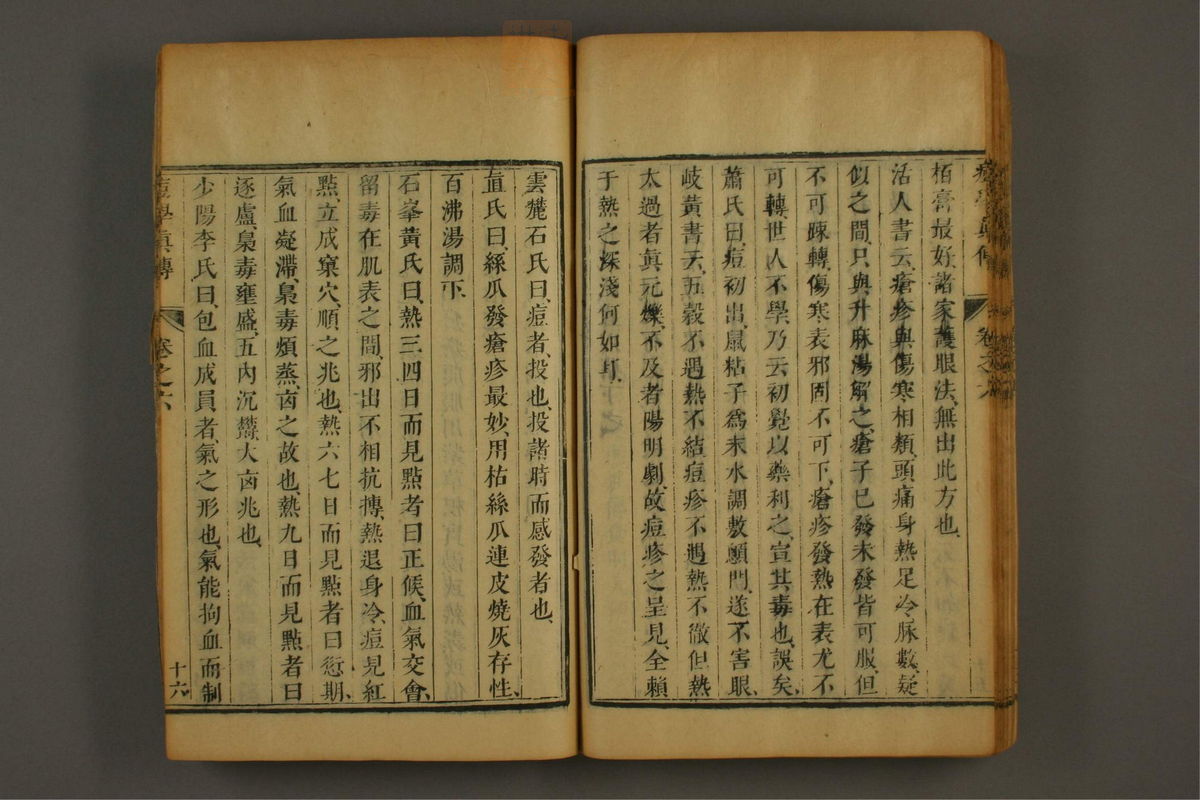 栢膏最好諸家護眼法無出此方也
活人書云瘡疹與傷寒相類頭痛身熱足冷脉數疑
似之間只與升麻湯解之瘡子已發未發皆可服但
不可疎轉傷寒表邪固不可下瘡疹發熱在表尤不
可轉世人不學乃云初覺以藥利之宣其毒也誤矣
蕭氏曰痘初出鼠粘子爲末水調敷顖門遂不害眼
岐黃書云五穀不遇熱不結痘疹不遇熱不徹但熱
太過者眞元爍不及者陽明劇故痘疹之呈見全賴
于熱之深淺何如耳
雲麓石氏曰痘者投也投諸時而感發者也
直氏曰絲爪發瘡疹最妙用枯絲爪連皮燒灰存性
百沸湯調下
石峯黃氏曰熱三四日而見點者曰正候血氣交會
留毒在肌表之間邪出不相抗搏熱退身冷痘見紅
點立成窠穴順之兆也熱六七日而見點者曰愆期
氣血凝滯梟毒煩蒸卤之故也熱九日而見點者曰
逐盧梟毒壅盛五內沉欝大卤兆也
少陽李氏曰包血成員者氣之形也氣能拘血而制
痘學眞傳
卷之六
十六